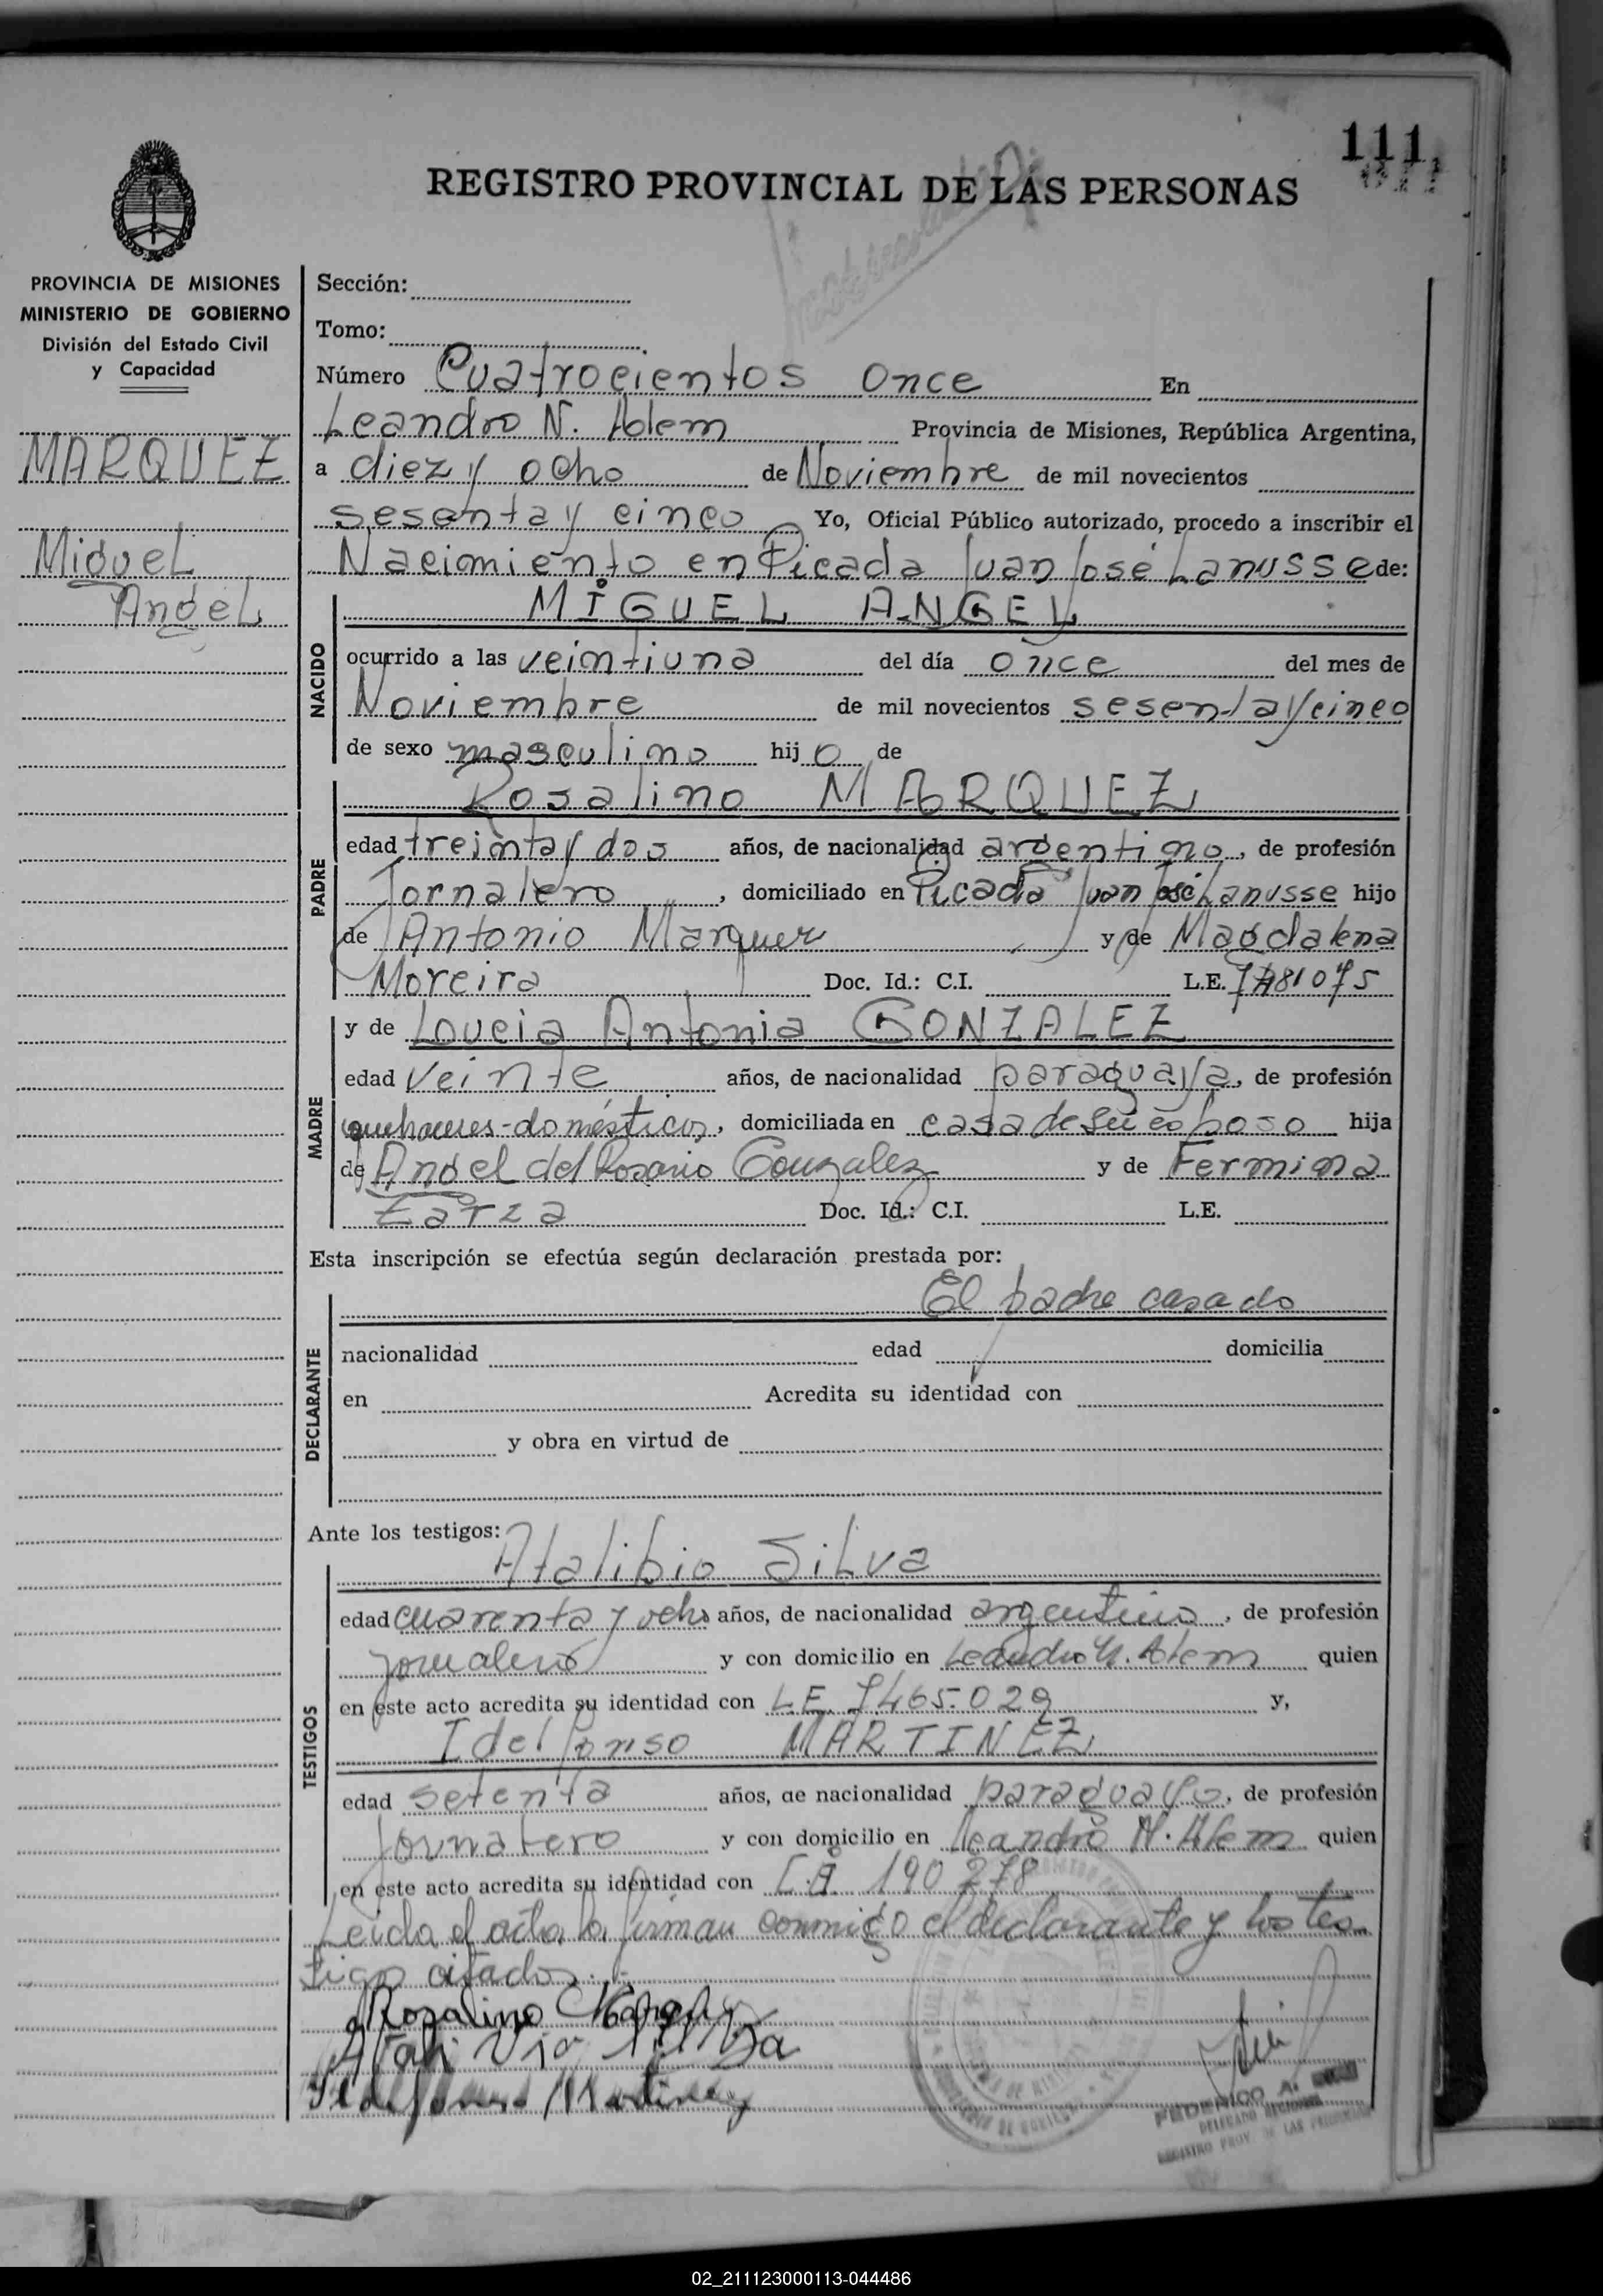 111
REGISTRO PROVINCIAL DE LAS PERSONAS
PROVINCIA DE MISIONES
MINISTERIO DE GOBIERNO
División del Estado Civil
y Capacidad
MARQUEZ
Miguel
Angel
Sección:
Tomo:
Número Cuatrocientos once En
Leandro N. Alem Provincia de Misiones, República Argentina,
a diez y ocho de Noviembre de mil novecientos
sesenta y cinco Yo, Oficial Público autorizado, procedo a inscribir el
Nacimiento en Picada Juan José Lanusse de:
NACIDO
MIGUEL ANGEL
ocurrido a las veintiuna del día once del mes de
Noviembre de mil novecientos sesenta y cinco
de sexo masculino hijo de
PADRE
Rosalino MARQUEZ
edad treinta y dos años, de nacionalidad argentino, de profesión
Jornalero, domiciliado en Picada Juan José Lanusse hijo
de Antonio Marquez y de Magdalena
Moreira Doc. Id.: C.I. L.E.
MADRE
y de Loucia Antonia GONZALEZ
edad veinte años, de nacionalidad paraguaya, de profesión
quehaceres-domésticos, domiciliada en casa de su esposo hija
de Angel del Rosario Gonzalez y de Fermina
Zarza Doc. Id.: C.I. L.E.
Esta inscripción se efectúa según declaración prestada por:
DECLARANTE
El padre casado
nacionalidad edad domicilia
en Acredita su identidad con
y obra en virtud de
Ante los testigos:
TESTIGOS
Atalibio Silva
edad cuarenta y ocho años, de nacionalidad argentino, de profesión
jornalero y con domicilio en Leandro N. Alem quien
en este acto acredita su identidad con L.E. 7465.029 y,
Idelfonso MARTINEZ
edad setenta años, de nacionalidad paraguayo, de profesión
Jornalero y con domicilio en Leandro N. Alem quien
en este acto acredita su identidad con 190 278
Leida el acta la firman conmigo el declarante y los tes-
tigos citados.
Rosalino Marquez
Silva
Ildefonso Martinez
FEDERICO A.
DELEGADO
REGISTRO PROV. DE LAS PERSONAS
02_211123000113-044486